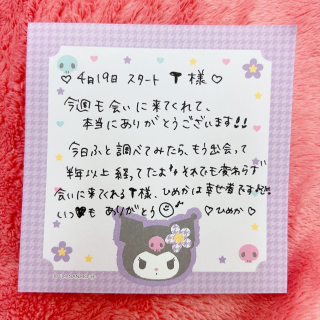 ♡ 4月19日 スタート T 様 ♡
今週も会いに来てくれて、
本当にありがとうございます!!
今日ふと調べてみたら、もう出会って
半年以上経ってたよ それでも変わらず
会いに来てくれるT様、ひめかは幸せ者です
いつ♥も ありがとう ♡ ひめか ♡